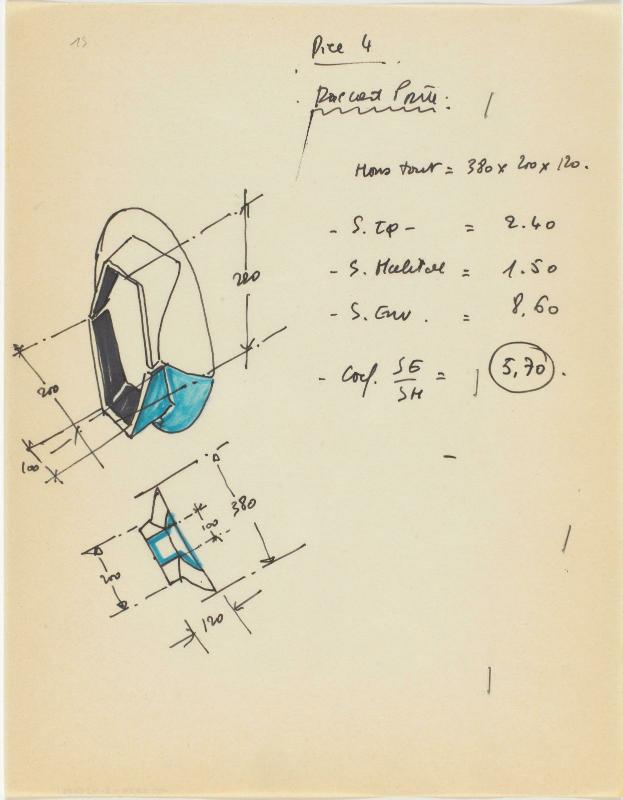 15
Pièce 4
Raccord Porte.
Hors tout = 380 x 200 x 120.
- S. = 2.40
- S. Habitable = 1.50
- S. Env. = 8,60
- Coef. SE/SH = 5,70.
200
200
100
380
100
200
120